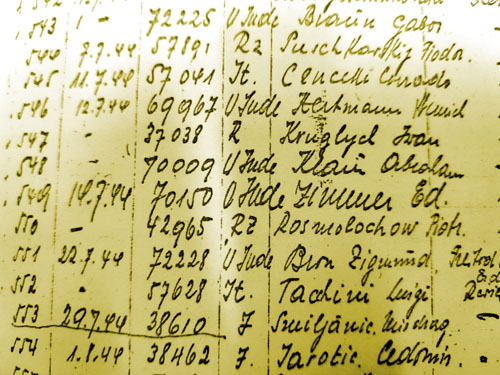 543 - 72225 U Jude Braun Gabor
544 7.7.44 57891 Rz Puschkarskij Fjodor
545 11.7.44 57041 It. Cencchi Conrado
546 12.7.44 69967 U Jude Hertmann Henrich
547 - 37038 R Kruglych Ivan
548 - 70009 U Jude Klein Abraham
549 14.7.44 70150 U Jude Zimmer Ed.
550 - 42965 Rz Rosmolochow Piotr.
551 22.7.44 72228 U Jude Bron Zigmund.
552 - 57628 It. Tacchini Luigi
553 29.7.44 38610 J
554 1.8.44 38462 J. Jarotic. Cedomir.